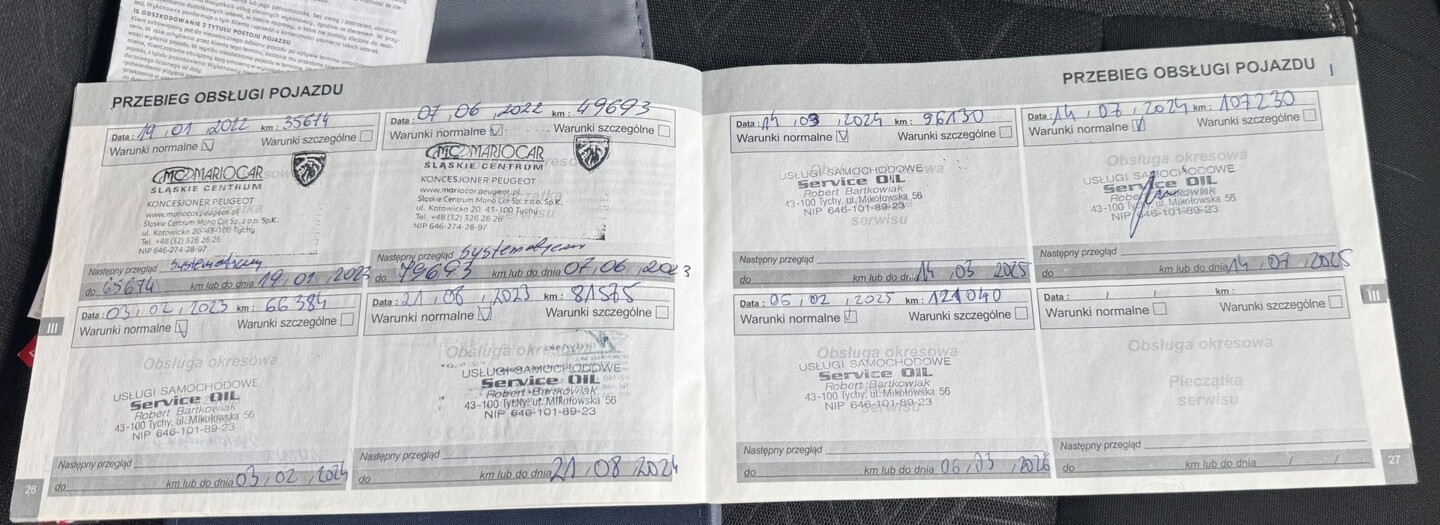 IS. ODSZKODOWANIE Z TYTUŁU POSTOJU POJAZDU
PRZEBIEG OBSŁUGI POJAZDU
Data : 19 , 01 , 2022 km : 35674
Warunki normalne V Warunki szczególne
MC MARIOCAR
ŚLĄSKIE CENTRUM
KONCESJONER PEUGEOT
www.mariocar.peugeot.pl
Śląskie Centrum Mario Car Sp. z o.o. Sp.K.
ul. Katowicka 20 43-100 Tychy
Tel. +48 (32) 326 26 26
NIP 646-274-28-97
Następny przegląd systematyczny
do 65674 km lub do dnia 19 , 01 , 2023
07 , 06 , 2022 km : 49693
Warunki normalne V Warunki szczególne
MC MARIOCAR
ŚLĄSKIE CENTRUM
KONCESJONER PEUGEOT
www.mariocar.peugeot.pl
Śląskie Centrum Mario Car Sp. z o.o. Sp.K.
ul. Katowicka 20 43-100 Tychy
Tel. +48 (32) 326 26 26
NIP 646-274-28-97
Następny przegląd systematyczny
do 79693 km lub do dnia 07 , 06 , 2023
Data : 03 , 02 , 2023 km : 66384
Warunki normalne V Warunki szczególne
Obsługa okresowa
USŁUGI SAMOCHODOWE
Service OIL
Robert Bartkowiak
43-100 Tychy, ul. Mikołowska 56
NIP 646-101-89-23
Następny przegląd
do km lub do dnia 03 , 02 , 2024
Data : 21 , 08 , 2023 km : 81575
Warunki normalne V Warunki szczególne
Obsługa okresowa
USŁUGI SAMOCHODOWE
Service OIL
Robert Bartkowiak
43-100 Tychy, ul. Mikołowska 56
NIP 646-101-89-23
Następny przegląd
do km lub do dnia 21 , 08 , 2024
26
III
PRZEBIEG OBSŁUGI POJAZDU
Data : 14 , 03 , 2024 km : 96130
Warunki normalne V Warunki szczególne
USŁUGI SAMOCHODOWE
Service OIL
Robert Bartkowiak
43-100 Tychy, ul. Mikołowska 56
NIP 646-101-89-23
serwisu
Następny przegląd
do km lub do dnia 14 , 03 2025
Data : 14 , 07 , 2024 km : 107230
Warunki normalne V Warunki szczególne
Obsługa okresowa
USŁUGI SAMOCHODOWE
Service OIL
Robert Bartkowiak
43-100 Tychy, ul. Mikołowska 56
NIP 646-101-89-23
serwisu
Następny przegląd
do km lub do dnia 14 , 07 , 2025
Data : 06 , 02 , 2025 km : 121040
Warunki normalne V Warunki szczególne
Obsługa okresowa
USŁUGI SAMOCHODOWE
Service OIL
Robert Bartkowiak
43-100 Tychy, ul. Mikołowska 56
NIP 646-101-89-23
serwisu
Następny przegląd
do km lub do dnia 06 , 03 , 2026
Data : / / km :
Warunki normalne Warunki szczególne
Obsługa okresowa
Pieczątka
serwisu
Następny przegląd
do km lub do dnia / /
III
27